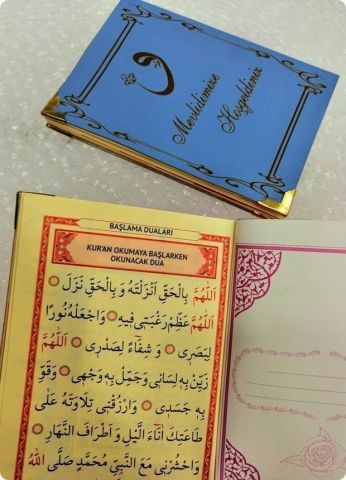 و
Mevlidimize
Hoşgeldiniz
BAŞLAMA DUALARI
KUR'AN OKUMAYA BAŞLARKEN
OKUNACAK DUA
اَللّٰهُمَّ بِالْحَقِّ اَنْزَلْتَهُ وَ بِالْحَقِّ نَزَلَ
اَللّٰهُمَّ عَظِّمْ رَغْبَتٖى فٖيهِ وَاجْعَلْهُ نُورًا
لِبَصَرٖى وَ شِفَٓاءً لِصَدْرٖى اَللّٰهُمَّ
زَيِّنْ بِهٖ لِسَانٖى وَجَمِّلْ بِهٖ وَجْهٖى وَقَوِّ
بِهٖ جَسَدٖى وَارْزُقْنٖى تِلَاوَتَهُ عَلٰى
طَاعَتِكَ اٰنَٓاءَ الَّيْلِ وَ اَطْرَافَ النَّهَارِ
وَاحْشُرْنٖى مَعَ النَّبِىِّ مُحَمَّدٍ صَلَّى اللهُ